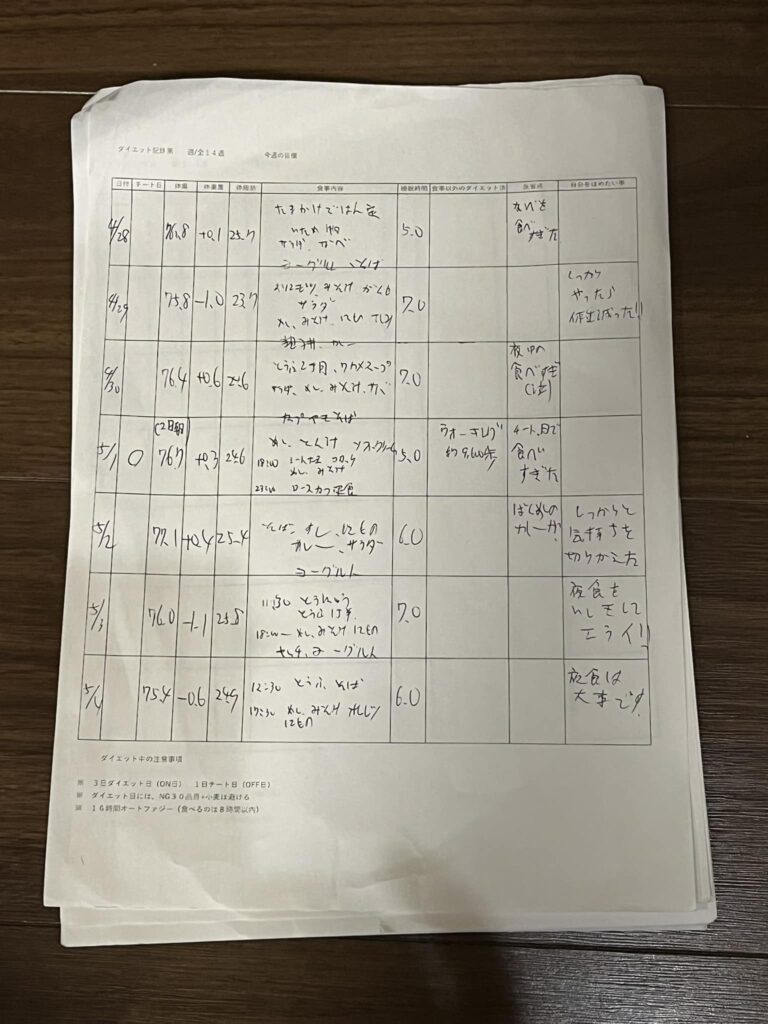 ダイエット記録第　週/全１４週　今週の目標
日付 チート日 体重 体重差 体脂肪 食事内容 睡眠時間 食事以外のダイエット法 反省点 自分をほめたい事
4/28 76.8 +0.1 25.7 5.0
たまかけごはん
サラダ なべ
ヨーグルト そば
なべを
食べ
すぎた
4/29 75.8 -1.0 23.7 7.0
サラダ
めし、みそ汁
しっかり
やったら
体重減った!!
4/30 76.4 +0.6 24.6 7.0
とうふ2ヶ月、ワカメスープ
めし、みそ汁
夜中の
食べすぎ
(泣)
5/1 ○ (2日朝) 76.7 +0.3 24.6 5.0
カップやきそば
めし、とん汁 ソフトクリーム
18:00 コロッケ
めし、みそ汁
ロースカツ定食
ウォーキング
約9,600歩
チート日で
食べ
すぎた
5/2 77.1 +0.4 25.4 6.0
そば、すし、にもの
カレー、サラダー
ヨーグルト
ばんめしの
カレーか?
しっかりと
気持ちを
切りかえた
5/3 76.0 -1.1 25.8 7.0
11:30 とうにゅう
とうふ
18:00ー めし、みそ汁 にもの
ヨーグルト
夜食を
いしきして
エライ!!
5/4 75.4 -0.6 24.9 6.0
12:30 とうふ、そば
17:30 めし、みそ汁
にもの
夜食は
大事です!
ダイエット中の注意事項
※　３日ダイエット日（ON日）　１日チート日（OFF日）
※　ダイエット日には、NG３０品目+小麦は避ける
※　１６時間オートファジー（食べるのは８時間以内）